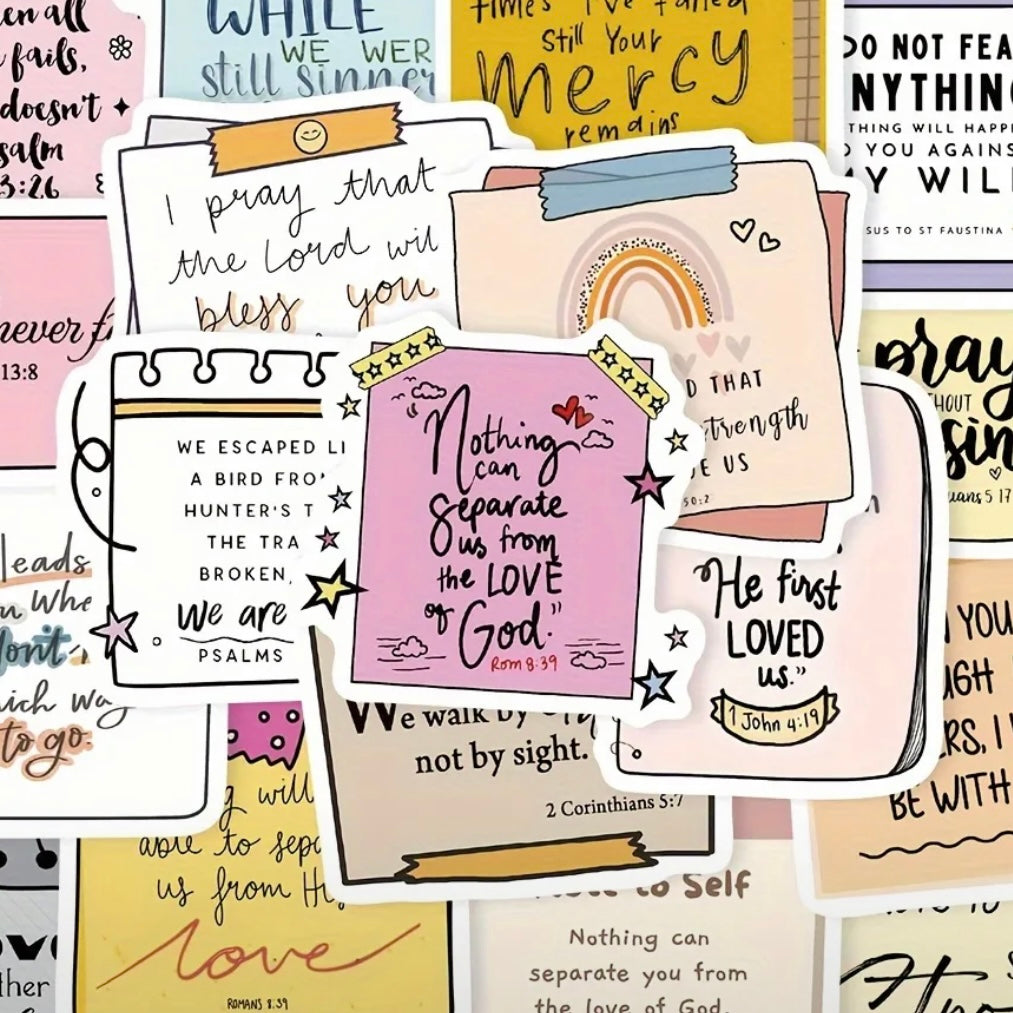 en all
fails,
doesn't
salm
3:26
WHILE
WE WER
still sinner
times I've failed
Still Your
Mercy
remains
DO NOT FEA
NYTHING
THING WILL HAPP
YOU AGAINS
MY WILL
SUS TO ST FAUSTINA
I pray that
the Lord will
bless you
D THAT
strength
US
50:2
never f
13:8
WE ESCAPED LI
A BIRD FRO
HUNTER'S T
THE TRA
BROKEN,
We are
PSALMS
Nothing
can
separate
us from
the LOVE
of God."
Rom 8:39
pray
HOUT
sin
ians 5 17
"He first
LOVED
us."
1 John 4:19
leads
n whe
don't
ich way
to go.
We walk by
not by sight.
2 Corinthians 5:7
YOU
UGH
ERS, I
BE WITH
g will
able to sepa
us from Hi
love
ROMANS 8:39
to Self
Nothing can
separate you from
the love of God.
ove
ther